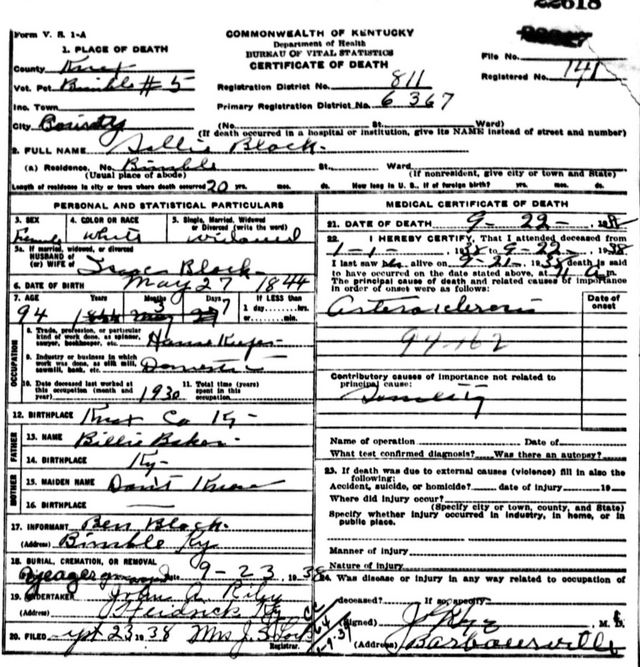 22618
Form V. S. 1-A
COMMONWEALTH OF KENTUCKY
Department of Health
BUREAU OF VITAL STATISTICS
CERTIFICATE OF DEATH
1. PLACE OF DEATH
County Knox
Vot. Pct. Bimble # 5
Inc. Town
City County
File No.
Registered No. 141
Registration District No. 811
Primary Registration District No. 6367
(No. St. Ward)
(If death occurred in a hospital or institution, give its NAME instead of street and number)
2. FULL NAME Black
(a) Residence, No. Bimble St. Ward
(Usual place of abode) (If nonresident, give city or town and State)
Length of residence in city or town where death occurred 20 yrs. mos. ds. How long in U. S., if of foreign birth? yrs. mos. ds.
PERSONAL AND STATISTICAL PARTICULARS
3. SEX 4. COLOR OR RACE 5. Single, Married, Widowed or Divorced (write the word)
Female White Widowed
5a. If married, widowed, or divorced
HUSBAND of
(or) WIFE of Isaac Black
6. DATE OF BIRTH May 27 1844
7. AGE Years Months Days If LESS than
94 3 27 1 day, hrs.
or min.
OCCUPATION
8. Trade, profession, or particular kind of work done, as spinner, sawyer, bookkeeper, etc. House Keeper
9. Industry or business in which work was done, as silk mill, sawmill, bank, etc. Domestic
10. Date deceased last worked at this occupation (month and year) 1930
11. Total time (years) spent in this occupation
12. BIRTHPLACE Knox Co Ky-
FATHER
13. NAME Billie Baker
14. BIRTHPLACE Ky-
MOTHER
15. MAIDEN NAME Dont Know
16. BIRTHPLACE —
17. INFORMANT Ben Black
(Address) Bimble Ky
18. BURIAL, CREMATION, OR REMOVAL
Yeager Date 9-23, 1938
19. UNDERTAKER John A Riley
(Address) Heidrick Ky
20. FILED Sept 23 1938 Mrs J.
Registrar.
MEDICAL CERTIFICATE OF DEATH
21. DATE OF DEATH 9-22-, 1938
22. I HEREBY CERTIFY, That I attended deceased from
1-1-, 1938 to 9-22-, 1938
I last saw her alive on 9-21-, 1938 death is said
to have occurred on the date stated above, at 11 a m.
The principal cause of death and related causes of importance
in order of onset were as follows:
Date of onset
Arterosclerosis
94-162
Contributory causes of importance not related to
principal cause:
Senility
Name of operation Date of
What test confirmed diagnosis? Was there an autopsy?
23. If death was due to external causes (violence) fill in also the
following:
Accident, suicide, or homicide? date of injury 19
Where did injury occur?
(Specify city or town, county, and State)
Specify whether injury occurred in industry, in home, or in
public place.
Manner of injury
Nature of injury
24. Was disease or injury in any way related to occupation of
deceased? If so, specify
(Signed) M. D.
(Address) Barbourville